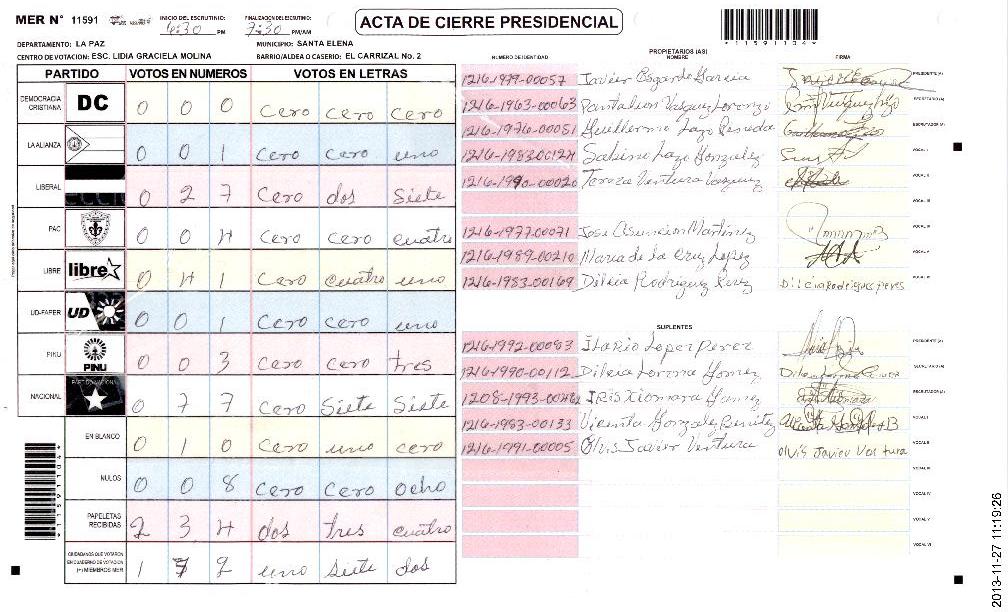 MER N° 11591
INICIO DEL ESCRUTINIO: 4:30 PM
FINALIZACION DEL ESCRUTINIO: 7:30 PM/AM
ACTA DE CIERRE PRESIDENCIAL
*11591134*
DEPARTAMENTO: LA PAZ
MUNICIPIO: SANTA ELENA
CENTRO DE VOTACION: ESC. LIDIA GRACIELA MOLINA
BARRIO/ALDEA O CASERIO: EL CARRIZAL No. 2
PARTIDO VOTOS EN NUMEROS VOTOS EN LETRAS
DEMOCRACIA CRISTIANA DC 0 0 0 Cero Cero Cero
LA ALIANZA 0 0 1 Cero Cero uno
LIBERAL 0 2 7 Cero dos Siete
PAC 0 0 4 Cero Cero cuatro
LIBRE libre 0 4 1 Cero cuatro uno
UD-FAPER UD 0 0 1 Cero Cero uno
PINU PINU 0 0 3 Cero Cero tres
NACIONAL PARTIDO NACIONAL 0 7 7 Cero Siete Siete
EN BLANCO 0 1 0 Cero uno cero
NULOS 0 0 8 Cero Cero ocho
PAPELETAS RECIBIDAS 2 3 4 dos tres cuatro
CIUDADANOS QUE VOTARON EN CUADERNO DE VOTACION (+) MIEMBROS MER 1 7 2 uno siete dos
PROPIETARIOS (AS)
NUMERO DE IDENTIDAD NOMBRE FIRMA
1216-1979-00057 Javier Garcia PRESIDENTE (A)
1216-1963-00063 Pantalion Vasquez Lorenzo SECRETARIO (A)
1216-1976-00051 Guillermo Lazo Pereda ESCRUTADOR (A)
1216-1983-00124 Sabino Lazo Gonzalez VOCAL I
1216-1990-00020 Tereza Ventura Vasquez VOCAL II
VOCAL III
1216-1977-00071 Jose Asuncion Martinez VOCAL IV
1216-1989-00210 Maria de la Cruz Lopez VOCAL V
1216-1983-00169 Dilcia Rodriguez Perez Dilcia Rodriguez Peres VOCAL VI
SUPLENTES
1216-1992-00083 Ilario Lopez Perez PRESIDENTE (A)
1216-1990-00112 Dilcia Lorena Gomez SECRETARIO (A)
1208-1993-00462 IRIS Xiomara Gomez ESCRUTADOR (A)
1216-1983-00133 Vicenta Gonzalez Benitez VOCAL I
1216-1991-00005 Olvis Javier Ventura Olvis Javier Ventura VOCAL II
VOCAL III
VOCAL IV
VOCAL V
VOCAL VI
2013-11-27 11:19:26